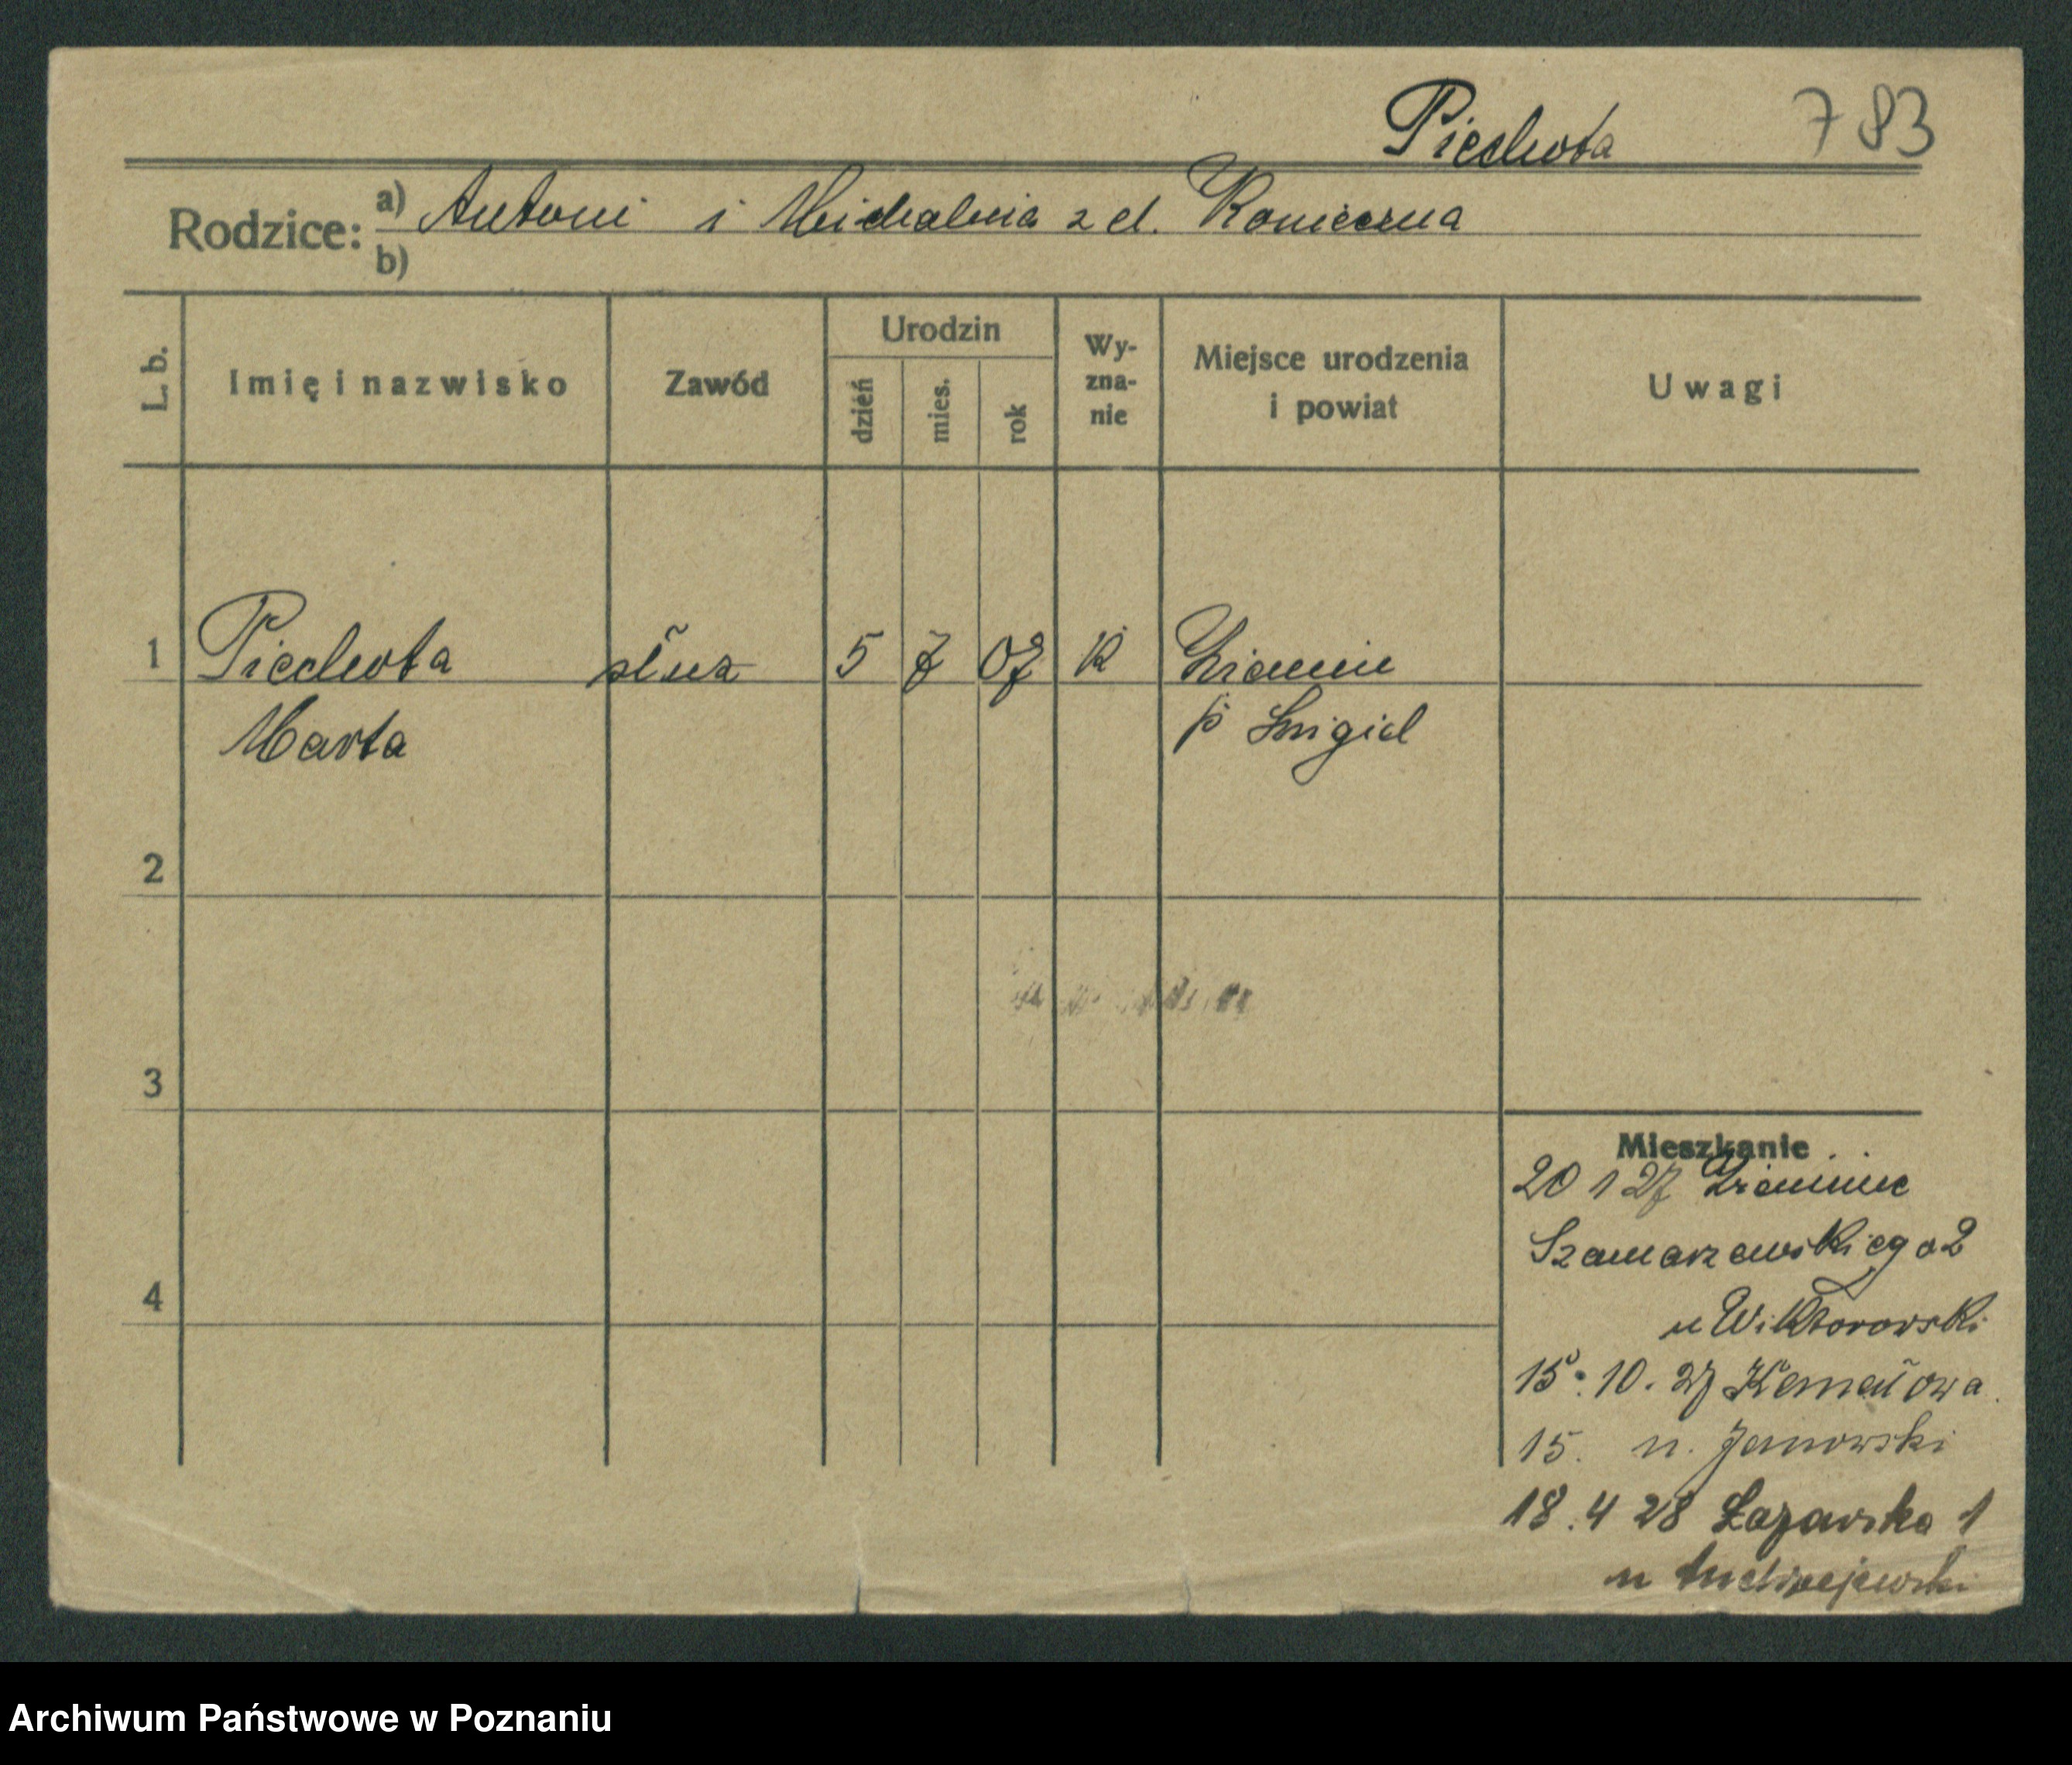 Piechota 783
Rodzice: a) Antoni i Michalina z d. Konieczna
b)
L. b. Imię i nazwisko Zawód Urodzin dzień mies. rok Wy-zna-nie Miejsce urodzenia i powiat Uwagi
1 Piechota służ 5 7 07 K
Marta p Śmigiel
2
3
4
Mieszkanie
20 1 27
Szamarzewskiego 2
u Wiktorowski
15. 10. 27
15. u. Janowski
18. 4 28 Łazarska 1
u Andrzejewski
Archiwum Państwowe w Poznaniu